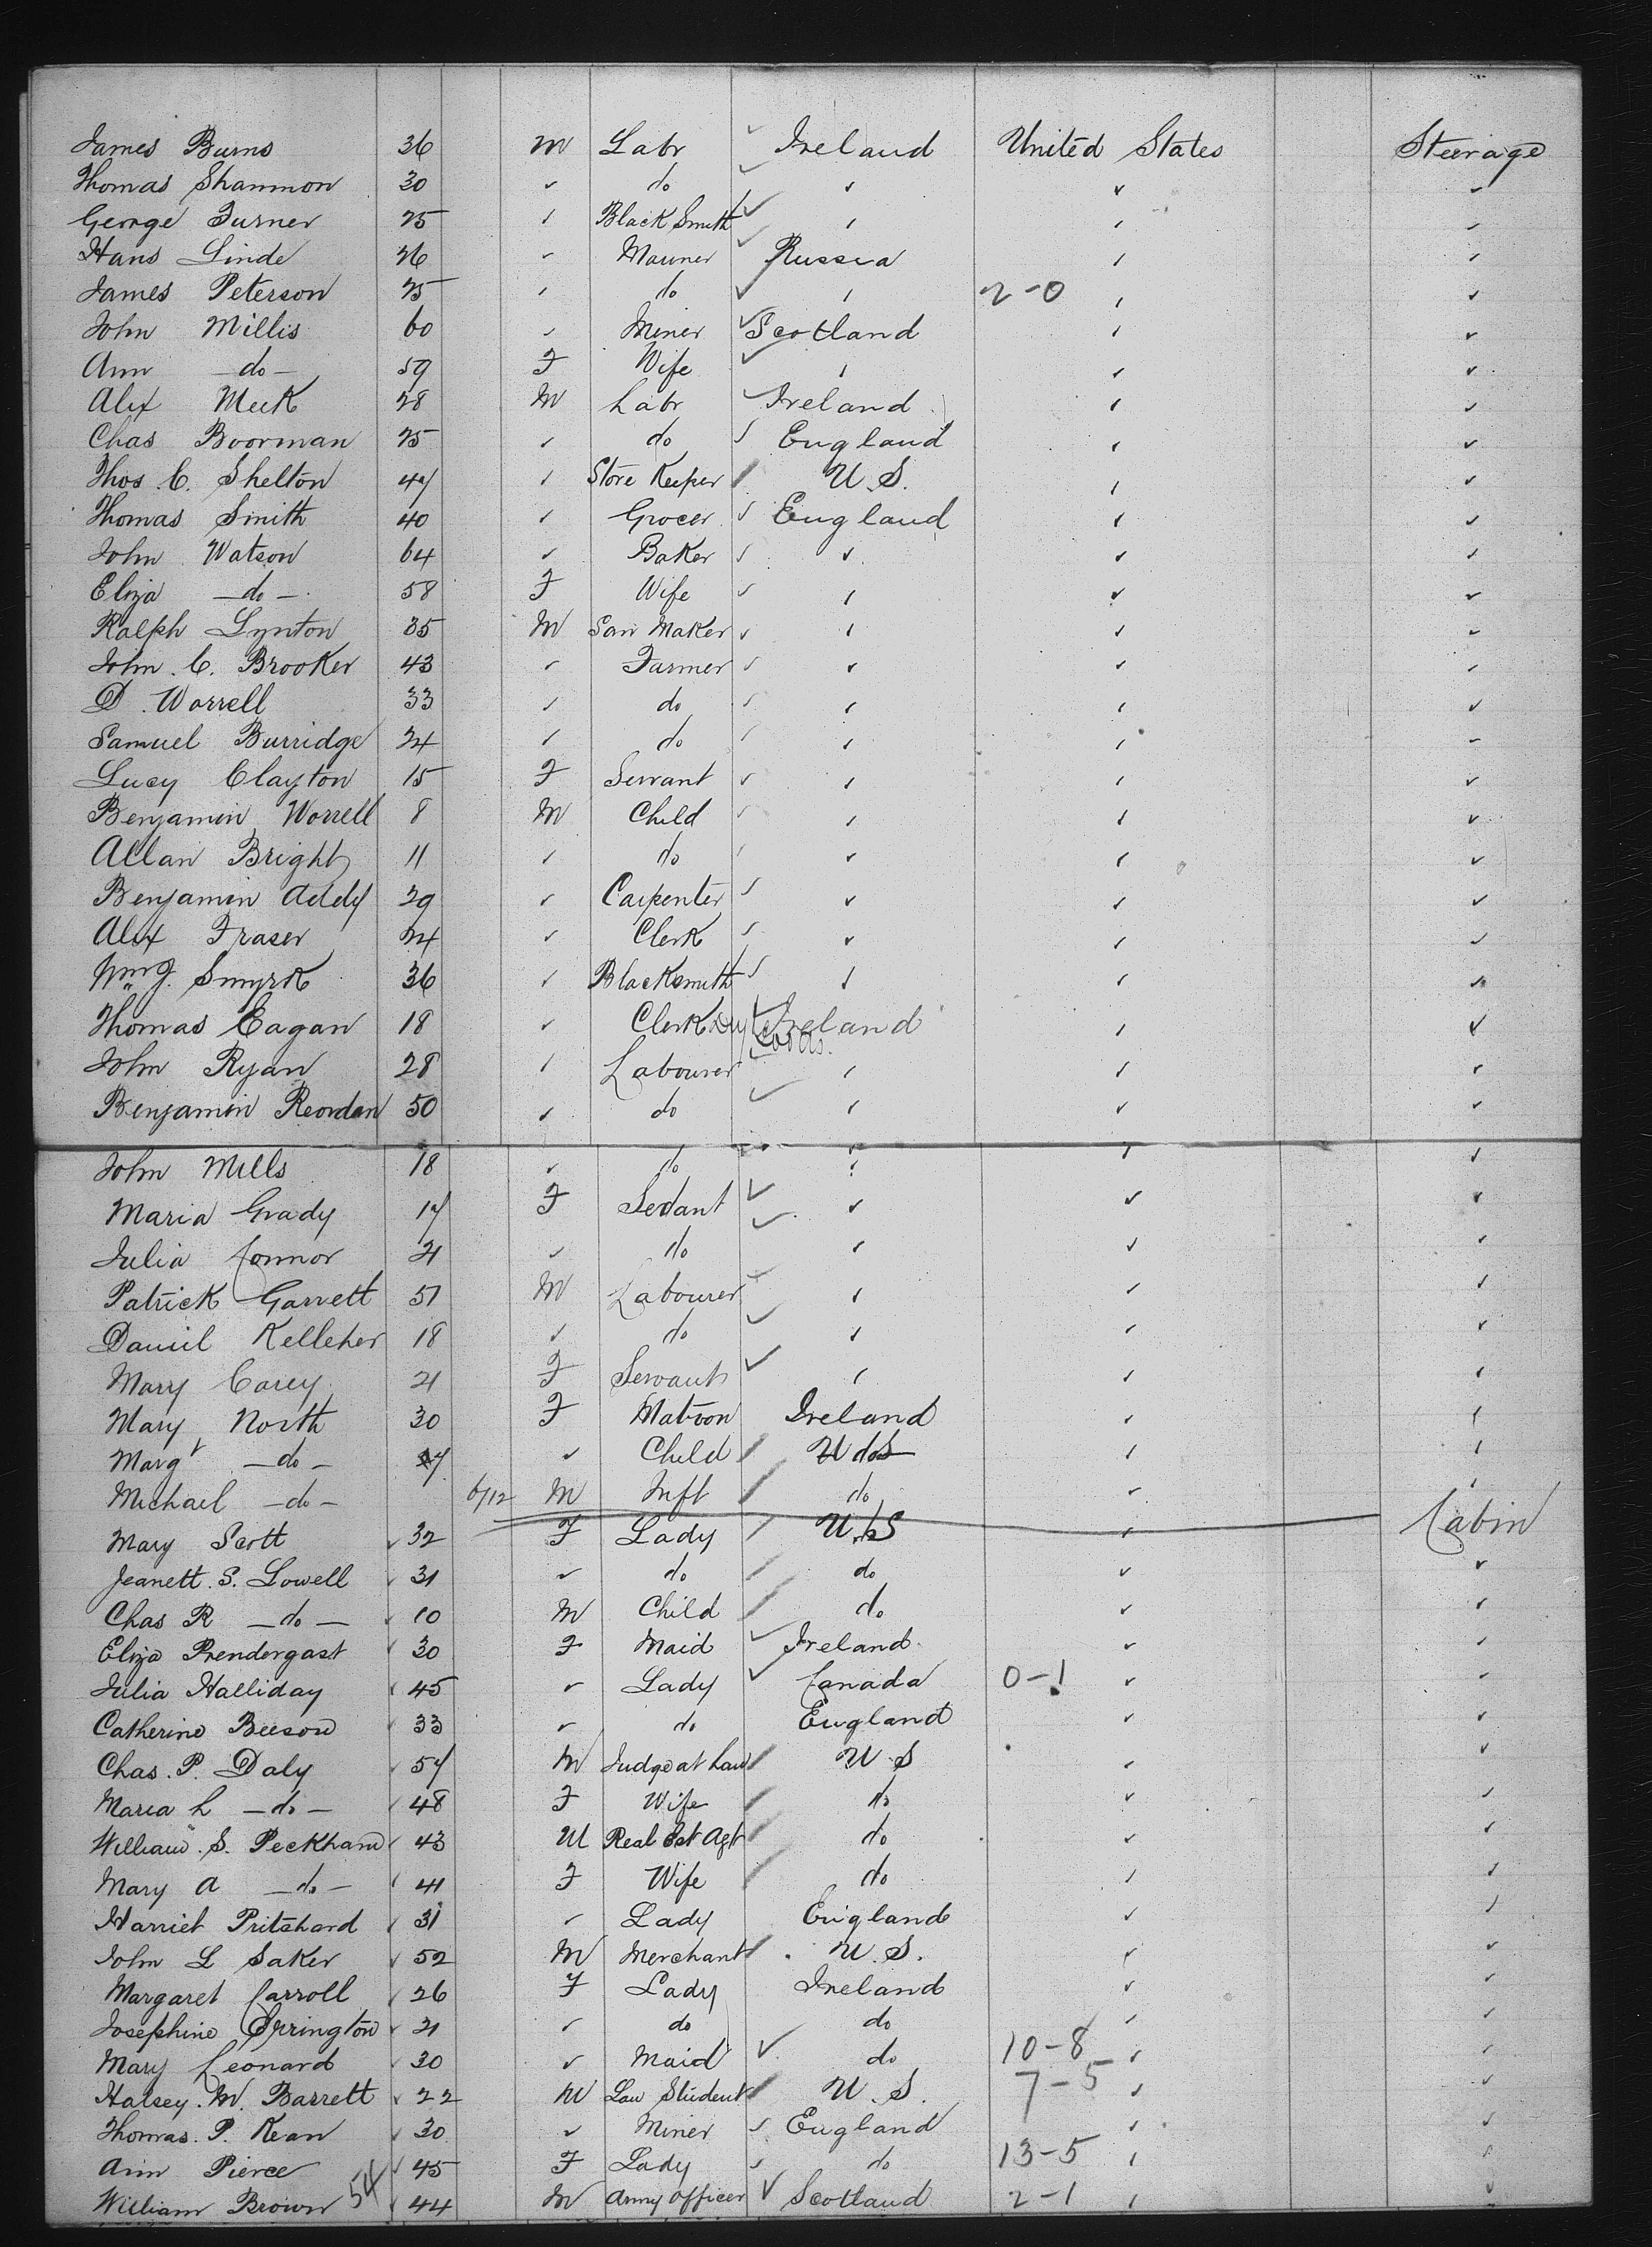 James Burns 36 M Labr ✓ Ireland United States Steerage
Thomas Shannon 30 ✓ do ✓ ✓ ✓ ✓
George Turner 25 ✓ Black Smith ✓ ✓ ✓ ✓
Hans Linde 26 ✓ Mariner ✓ Russia ✓ ✓
James Peterson 25 ✓ do ✓ ✓ 2-0 ✓ ✓
John Millis 60 ✓ Miner ✓ Scotland ✓ ✓
Ann -do- 59 F Wife ✓ ✓ ✓ ✓
Alex Meek 28 M Labr ✓ Ireland ✓ ✓
Chas Boorman 25 ✓ do ✓ England ✓ ✓
Thos. C. Shelton 47 ✓ Store Keeper / U.S. ✓ ✓
Thomas Smith 40 ✓ Grocer ✓ England ✓ ✓
John Watson 64 ✓ Baker ✓ ✓ ✓ ✓
Eliza -do- 58 F Wife ✓ ✓ ✓ ✓
Ralph Lynton 35 M Saw Maker ✓ ✓ ✓ ✓
John. C. Brooker 43 ✓ Farmer ✓ ✓ ✓ ✓
D. Worrell 33 ✓ do ✓ ✓ ✓ ✓
Samuel Burridge 24 ✓ do ✓ ✓ ✓ ✓
Lucy Clayton 15 F Servant ✓ ✓ ✓ ✓
Benjamin Worrell 8 M Child ✓ ✓ ✓ ✓
Allan Bright 11 ✓ do ✓ ✓ ✓ ✓
Benjamin Addy 29 ✓ Carpenter ✓ ✓ ✓ ✓
Alex Fraser 24 ✓ Clerk ✓ ✓ ✓ ✓
Wm J. Smyrk 36 ✓ Blacksmith ✓ ✓ ✓ ✓
Thomas Eagan 18 ✓ Clerk Dry Goods. ✓ Ireland ✓ ✓
John Ryan 28 ✓ Labourer ✓ ✓ ✓ ✓
Benjamin Reordan 50 ✓ do ✓ ✓ ✓ ✓
John Mills 18 ✓ do ✓ ✓ ✓
Maria Grady 17 F Servant ✓ ✓ ✓ ✓
Julia Connor 21 ✓ do ✓ ✓ ✓ ✓
Patrick Garrett 51 M Labourer ✓ ✓ ✓ ✓
Daniel Kelleher 18 ✓ do ✓ ✓ ✓ ✓
Mary Carey 21 F Servant ✓ ✓ ✓ ✓
Mary North 30 F Matron Ireland ✓ ✓
Margt -do- 7 ✓ Child / U S ✓ ✓
Michael -do- 6/12 M Inft / do ✓ ✓
Mary Scott ✓ 32 F Lady / U S ✓ Cabin
Jeanett. S. Lowell ✓ 31 ✓ do / do ✓ ✓
Chas R -do- ✓ 10 M Child / do ✓ ✓
Eliza Prendergast ✓ 30 F Maid ✓ Ireland ✓ ✓
Julia Halliday ✓ 45 ✓ Lady ✓ Canada 0-1 ✓ ✓
Catherine Beeson ✓ 33 ✓ do England ✓ ✓
Chas. P. Daly ✓ 57 M Judge at Law / U S ✓ ✓
Maria L -do- ✓ 48 F Wife / do ✓ ✓
William. S. Peckham ✓ 43 M Real Est Agt / do ✓ ✓
Mary A -do- ✓ 41 F Wife / do ✓ ✓
Harriet Pritshard ✓ 31 ✓ Lady England ✓ ✓
John L Saker ✓ 52 M Merchant / U.S. ✓ ✓
Margaret Carroll ✓ 26 F Lady Ireland ✓ ✓
Josephine Errington ✓ 21 ✓ do do ✓ ✓
Mary Leonard ✓ 30 ✓ Maid ✓ do 10-8 ✓ ✓
Halsey. W. Barrett ✓ 22 M Law Student / U.S. 7-5 ✓ ✓
Thomas. P. Kean ✓ 30 ✓ Miner ✓ England ✓ ✓
Ann Pierce ✓ 45 F Lady ✓ do 13-5 ✓ ✓
William Brown 54 ✓ 44 M Army Officer ✓ Scotland 2-1 ✓ ✓